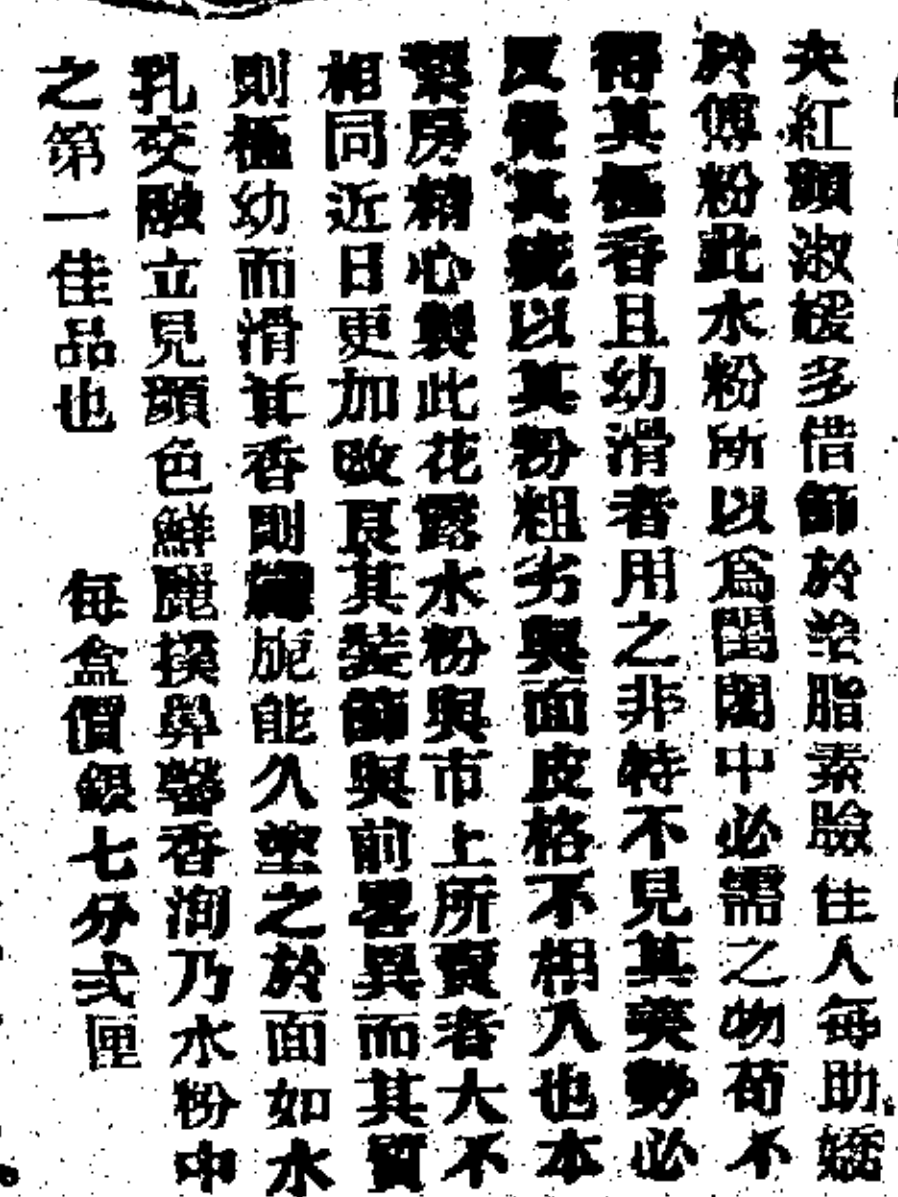 夫紅顏淑媛多借飾於塗脂素臉佳人每助嬌
於傅粉此水粉所以為閨閣中必需之物苟不
得其極香且幼滑者用之非特不見其美勢必
反覺其疵以其粉粗劣與面皮格不相入也本
製房精心製此花露水粉與市上所賣者大不
相同近日更加改良其裝飾與前畧異而其質
則極幼而滑其香則旎能久塗之於面如水
乳交融立見顏色鮮麗撲鼻馨香洵乃水粉中
之第一佳品也 每盒價銀七分式厘